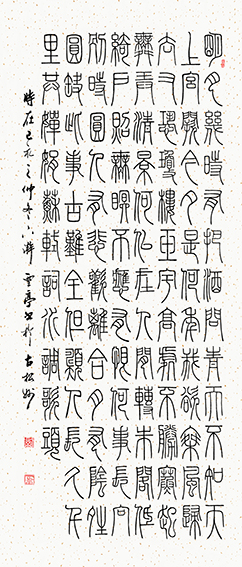 明月幾時有把酒問青天不知天
上宮闕今夕是何年我欲乘風歸
去又恐瓊樓玉宇高處不勝寒起
舞弄清影何似在人間轉朱閣低
綺戶照無眠不應有恨何事長向
別時圓人有悲歡離合月有陰晴
圓缺此事古難全但願人長久千
里共嬋娟蘇軾詞水調歌頭
時在己亥之仲冬雲亭書於古松州